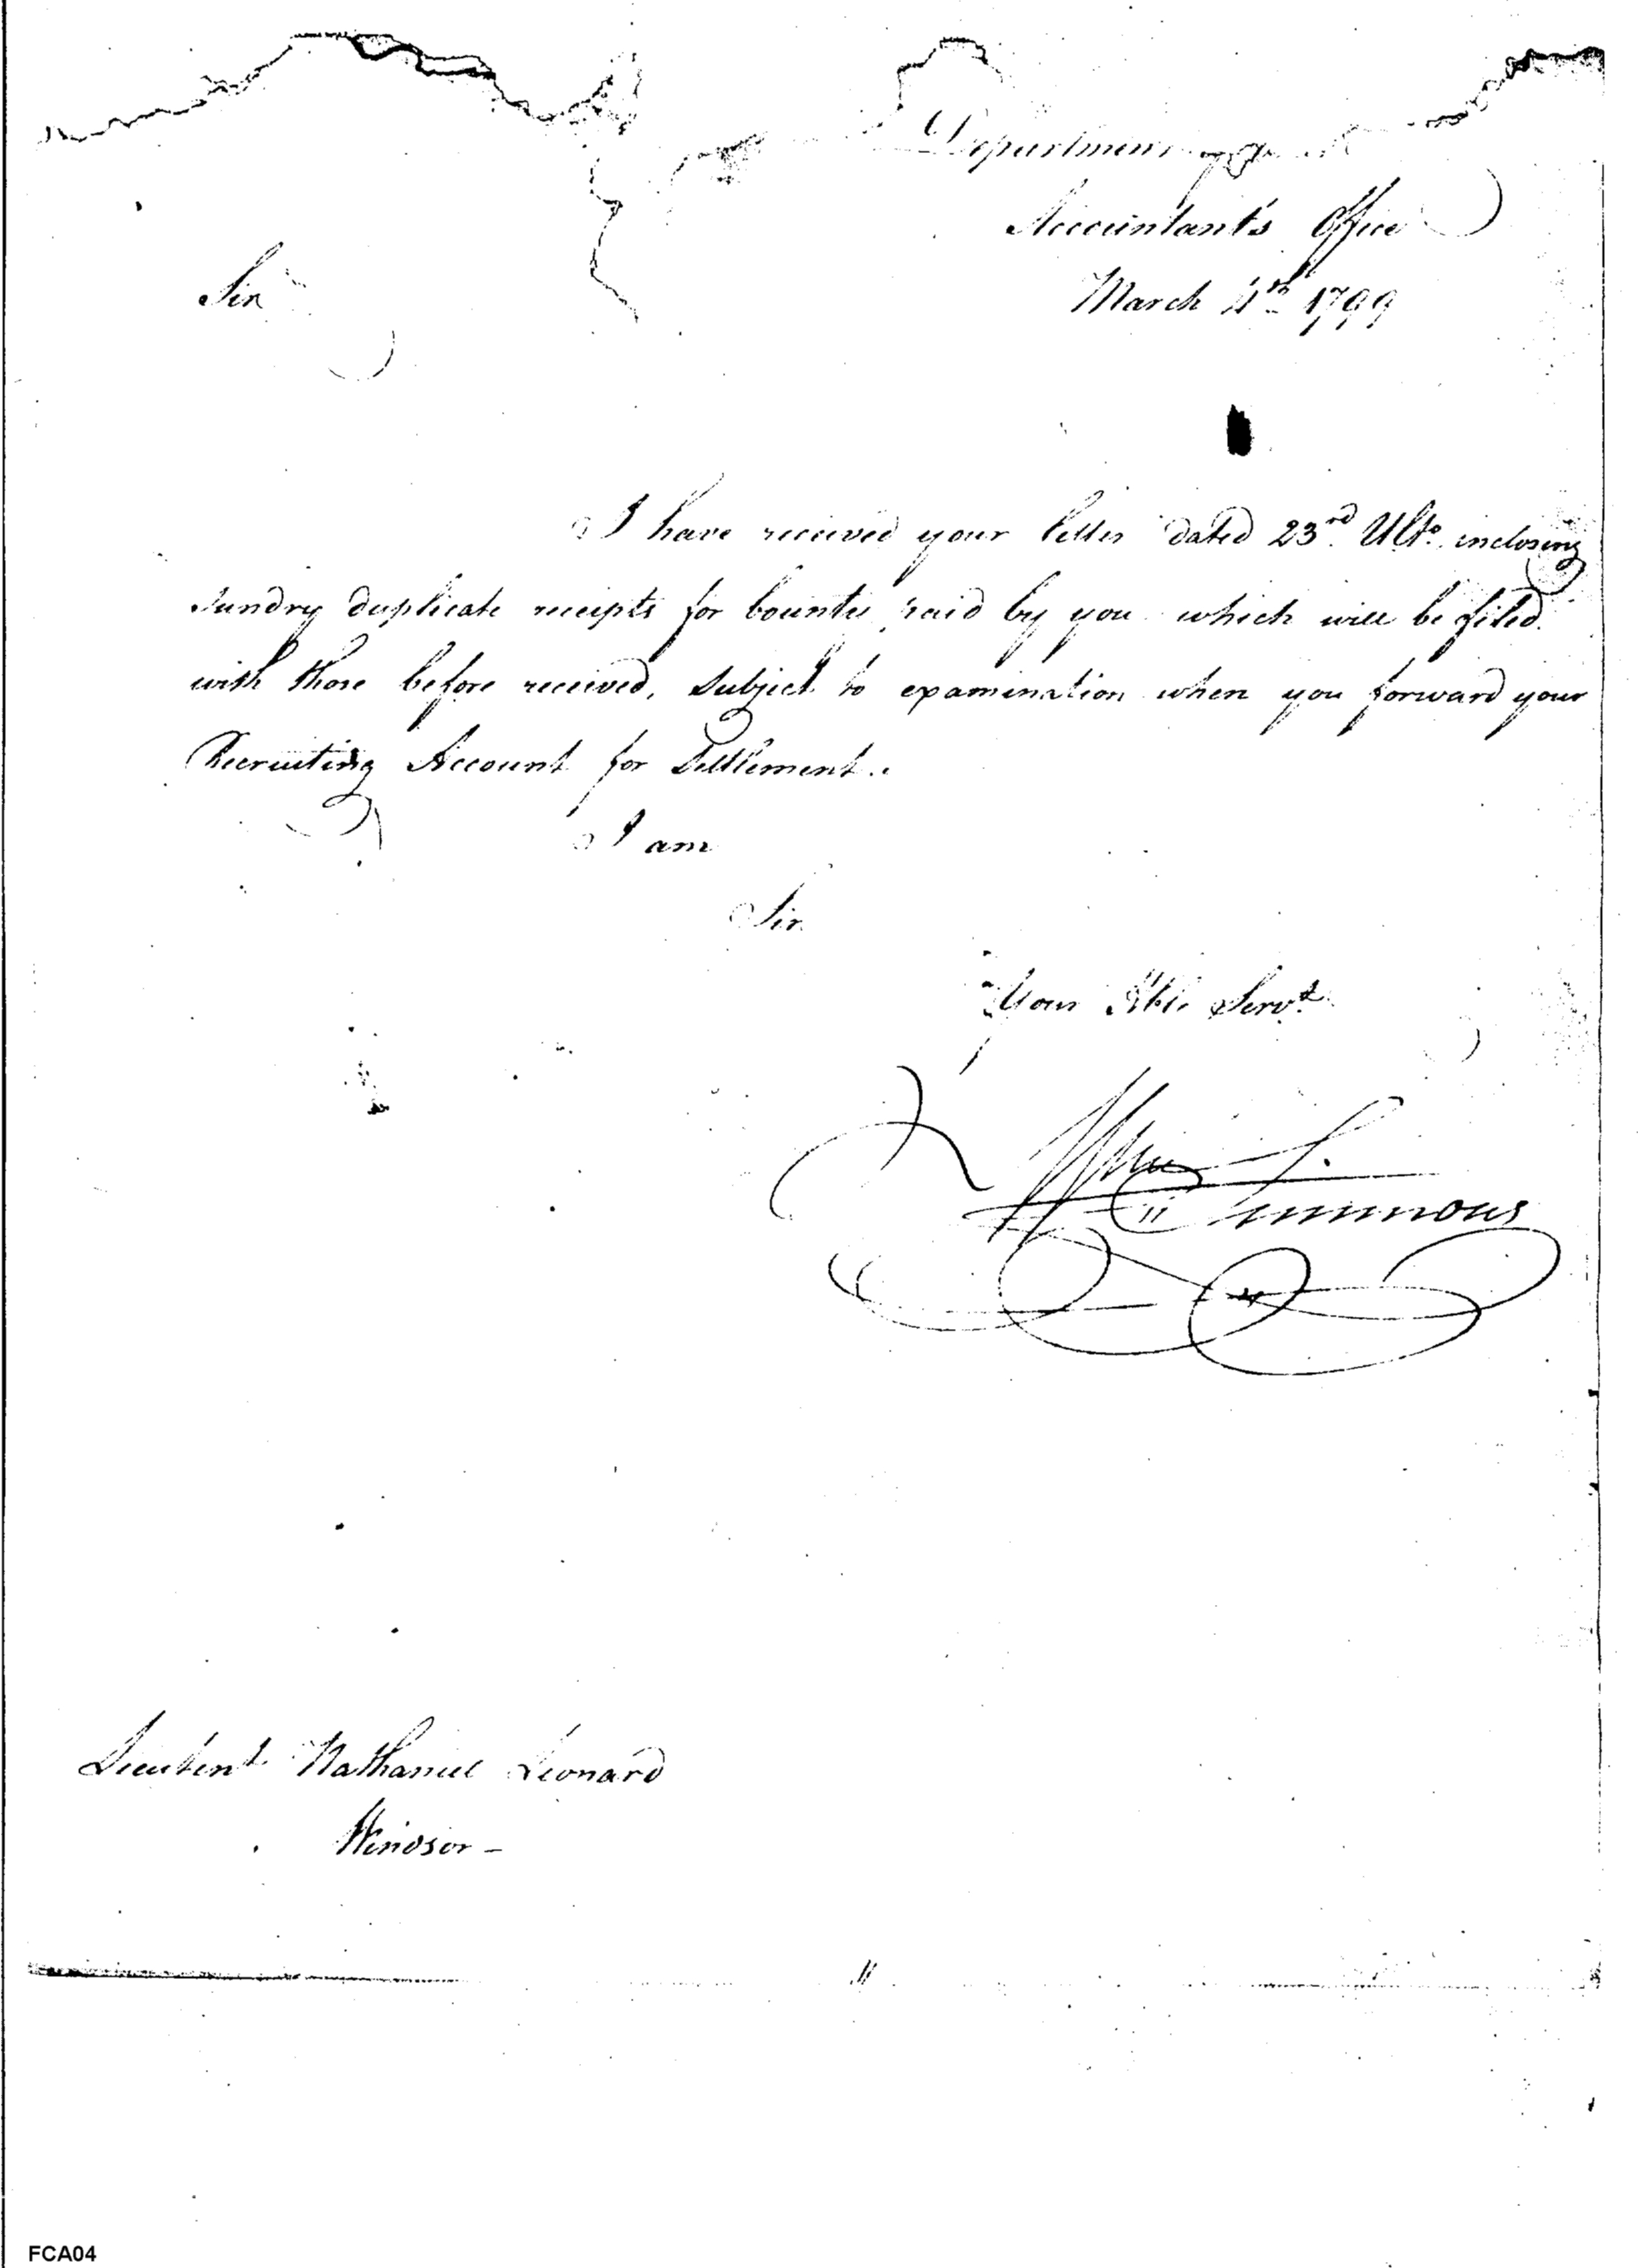 Department of
Accountant's Office
March 4th 1799
Sir
I have received your letter dated 23rd Ulto. inclosing
sundry duplicate receipts for bounty paid by you which will be filed
with those before received, subject to examination when you forward your
Recruiting Account for Settlement.
I am
Sir
Your Hble Servt
Wm Simmons
Lieutent Nathaniel Leonard
Windsor -
FCA04